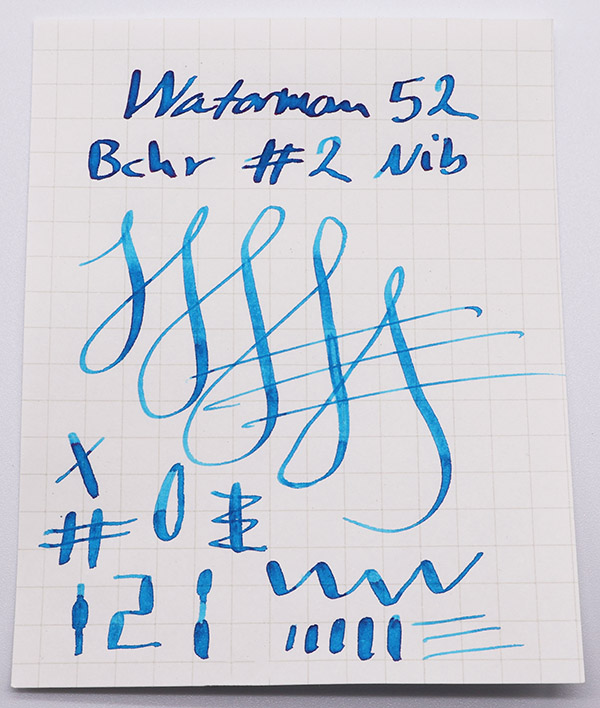 Waterman 52
Bchr #2 Nib
X
# 0
1 2 1